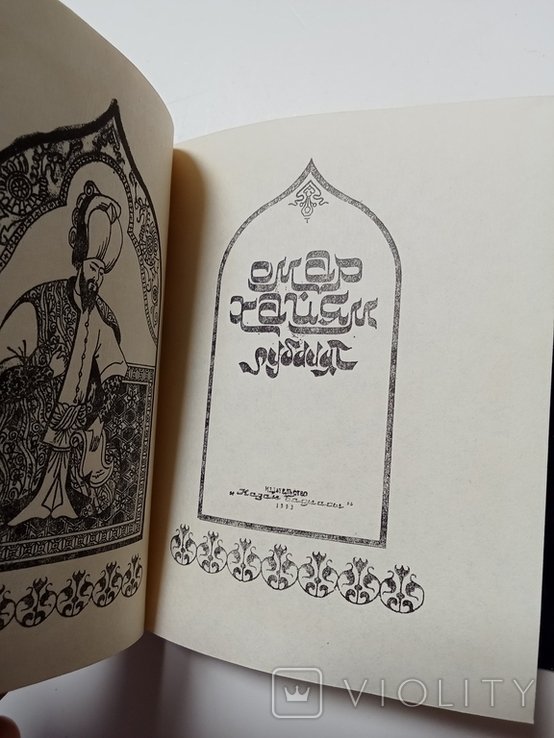 Омар
Хайям
Рубаят
издательство
"Казан баспасы"
1993
VIOLITY